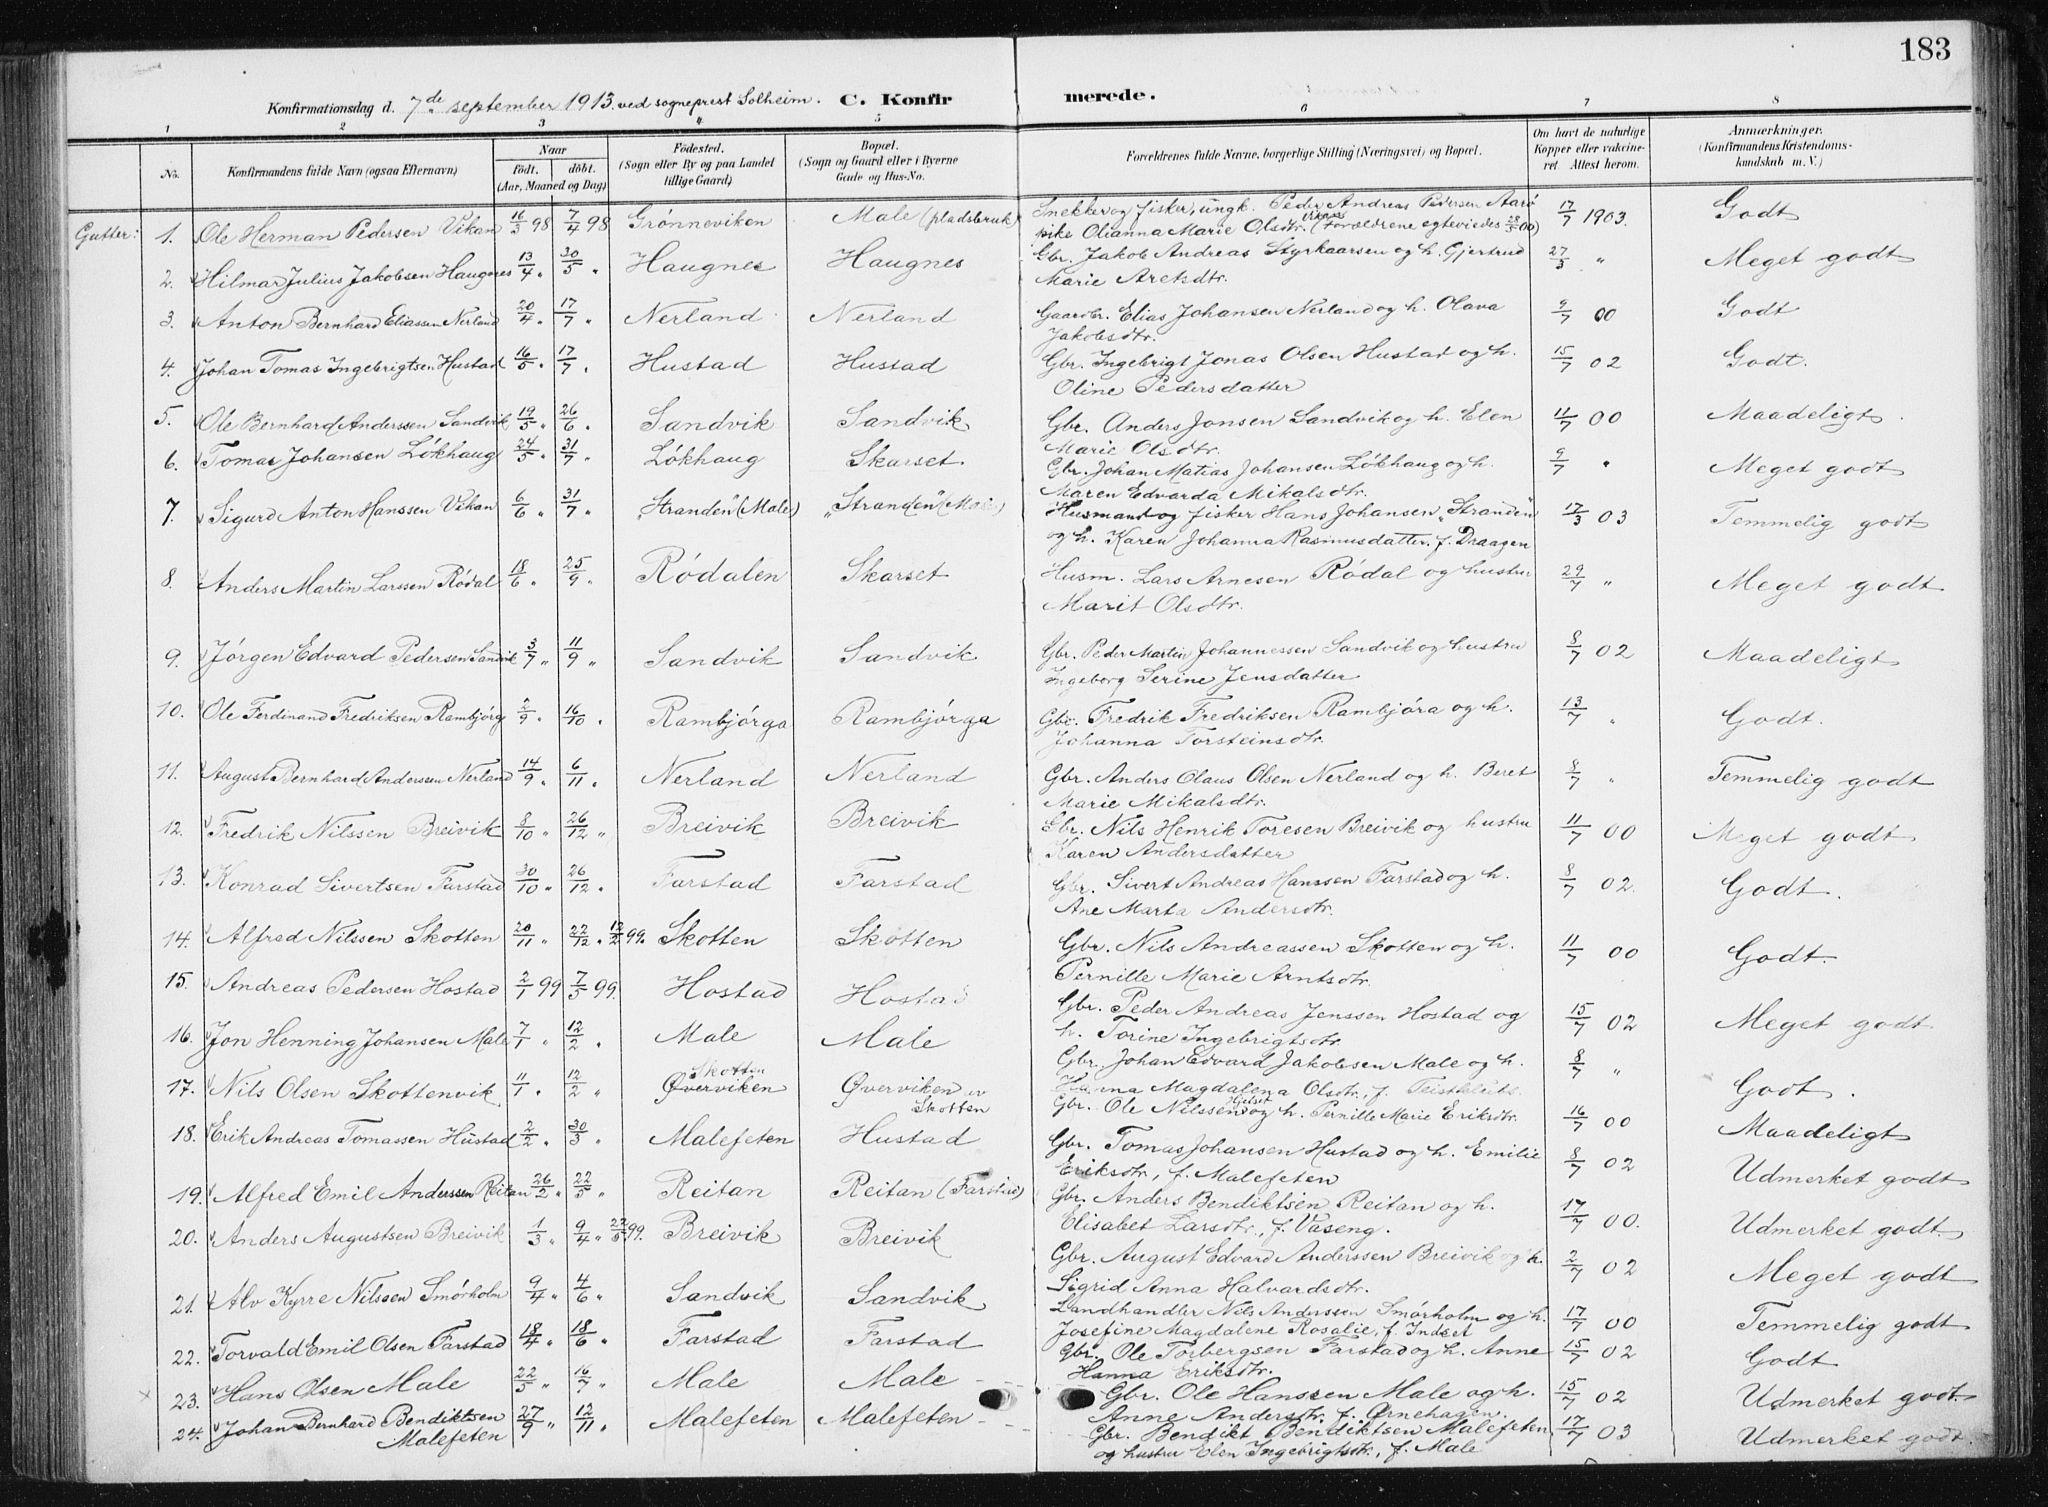 183
Konfirmationsdag d. 7de september 1913 ved sogneprest Solheim. C. Konfirmerede.
1 2 3 4 5 6 7 8
No. Konfirmandens fulde Navn (ogsaa Efternavn) Naar født. døbt. (Aar, Maaned og Dag) Fødested. (Sogn eller By og paa Landet tillige Gaard) Bopæl. (Sogn og Gaard eller i Byerne Gade og Hus-No. Forældrenes fulde Navne, borgerlige Stilling (Næringsvei) og Bopæl. Om havt de naturlige Kopper eller vaccineret. Attest herom. Anmærkninger. (Konfirmandens Kristendomskundskab m. V.)
Gutter: 1. Ole Herman Pedersen Vikan 16/3 98 7/4 98 Grønneviken Male (pladsbruk) Snekker og fisker, ungk. Peder Andreas Pedersen Aarø 17/7 1903. Godt
pike Olianna Marie Olsdtr. Vikan (Forældrene egteviedes 28/5 00)
2. Hilmar Julius Jakobsen Haugnes 13/4 " 30/5 " Haugnes Haugnes Gbr. Jakob Andreas Styrkaarsen og h. Gjertrud 27/3 " Meget godt
Marie Aretsdtr.
3. Anton Bernhard Eliassen Nerland 20/4 " 17/7 " Nerland Nerland Gaardbr. Elias Johansen Nerland og h. Olava 9/7 00 Godt
Jakobsdtr.
4. Johan Tomas Ingebrigtsen Hustad 16/5 " 17/7 " Hustad Hustad Gbr. Ingebrigt Jonas Olsen Hustad og h. 15/7 02 Godt.
Oline Pedersdatter
5. Ole Bernhard Anderssen Sandvik 19/5 " 26/6 " Sandvik Sandvik Gbr. Anders Jonsen Sandvik og h. Elen 11/7 00 Maadeligt.
Marie Olsdtr.
6. Tomas Johansen Løkhaug 24/5 " 31/7 " Løkhaug Skarset Gbr. Johan Matias Johansen Løkhaug og h. 9/7 " Meget godt
Maren Edvarda Mikalsdtr.
7. Sigurd Anton Hanssen Vikan 6/6 " 31/7 " "Stranden" (Male) "Stranden" (Male) Husmand og fisker Hans Johansen "Stranden" 17/3 03 Temmelig godt
og h. Karen Johanna Rasmusdatter, f. Draagen
8. Anders Martin Larssen Rødal 18/6 " 25/9 " Rødalen Skarset Husm. Lars Arnesen Rødal og hustru 29/7 " Meget godt
Marit Olsdtr.
9. Jørgen Edvard Pedersen Sandvik 3/7 " 11/9 " Sandvik Sandvik Gbr. Peder Martin Johannessen Sandvik og hustru 8/7 02 Maadeligt
Ingeborg Serine Jensdatter
10. Ole Ferdinand Fredriksen Rambjørg 2/9 " 16/10 " Rambjørga Rambjørga Gbr. Fredrik Fredriksen Rambjøra og h. 13/7 " Godt.
Johanna Torsteinsdtr.
11. August Bernhard Andersen Nerland 14/9 " 6/11 " Nerland Nerland Gbr. Anders Olaus Olsen Nerland og h. Beret 8/7 " Temmelig godt
Marie Mikalsdtr.
12. Fredrik Nilssen Breivik 8/10 " 26/12 " Breivik Breivik Gbr. Nils Henrik Toresen Breivik og hustru 11/7 00 Meget godt
Karen Andersdatter
13. Konrad Sivertsen Farstad 30/10 " 26/12 " Farstad Farstad Gbr. Sivert Andreas Hanssen Farstad og h. 8/7 02. Godt.
Ane Marta Andersdtr.
14. Alfred Nilssen Skotten 20/11 " 22/12 " 12/2 99. Skotten Skotten Gbr. Nils Andreassen Skotten og h. 11/7 00 Godt.
Pernille Marie Arntsdtr.
15. Andreas Pedersen Hostad 2/1 99 7/5 99. Hostad Hostad Gbr. Peder Andreas Jenssen Hostad og 15/7 02 Meget godt.
h. Torine Ingebrigtsdtr.
16. Jon Henning Johansen Male 7/1 " 12/2 " Male Male Gbr. Johan Edvard Jakobsen Male og h. 8/7 " Godt.
Hanna Magdalena Olsdtr., f.
17. Nils Olsen Skottenvik 11/1 " 12/2 " Skotten Øverviken Øverviken av Skotten Gbr. Ole Nilssen og h. Pernille Marie Eriksdtr. 16/7 00 Maadeligt
18. Erik Andreas Tomassen Hustad 2/2 " 30/3 " Malefeten Hustad Gbr. Tomas Johansen Hustad og h. Emilie 8/7 02 Udmerket godt
Eriksdtr., f. Malefeten
19. Alfred Emil Anderssen Reitan 26/2 " 22/5 " Reitan Reitan (Farstad) Gbr. Anders Bendiktsen Reitan og h. 17/7 00. Udmerket godt.
Elisabet Larsdtr., f. Vaseng.
20. Anders Augustsen Breivik 1/3 " 9/4 " 22/5 99. Breivik Breivik Gbr. August Edvard Anderssen Breivik og h. 2/7 02 Meget godt
Sigrid Anna Halvardsdtr.
21. Alv Kyrre Nilssen Smørholm 9/4 " 4/6 " Sandvik Sandvik Landhandler Nils Anderssen Smørholm og h. 17/7 00 Temmelig godt
Josefine Magdalene Rosalie, f. Indset
22. Torvald Emil Olsen Farstad 18/4 " 18/6 " Farstad Farstad Gbr. Ole Torbergsen Farstad og h. Anne 15/7 02 Godt
Hanna Eriksdtr.
23. Hans Olsen Male 22/5 " 16/7 " Male Male Gbr. Ole Hanssen Male og h. 15/7 02 Udmerket godt.
Anne Andersdtr. f. Ørnehagen.
24. Johan Bernhard Bendiktsen 27/9 " 12/11 " Malefeten Malefeten Gbr. Bendikt Bendiktsen Malefeten 17/7 03 Udmerket godt.
Malefeten og hustru Elen Ingebrigtsdtr., f. Male